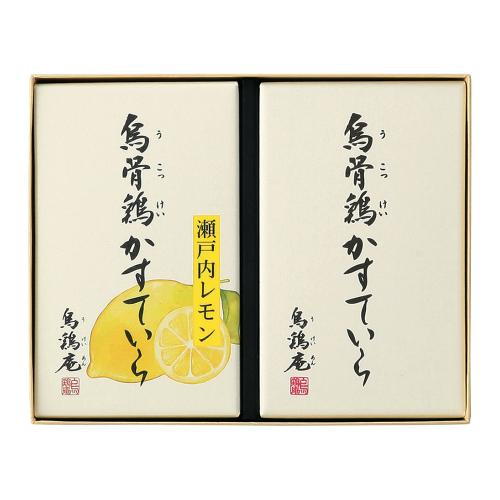 烏骨鶏かすていら
うこっけい
瀬戸内レモン
烏鶏庵
うけいあん
烏骨鶏かすていら
うこっけい
烏鶏庵
うけいあん